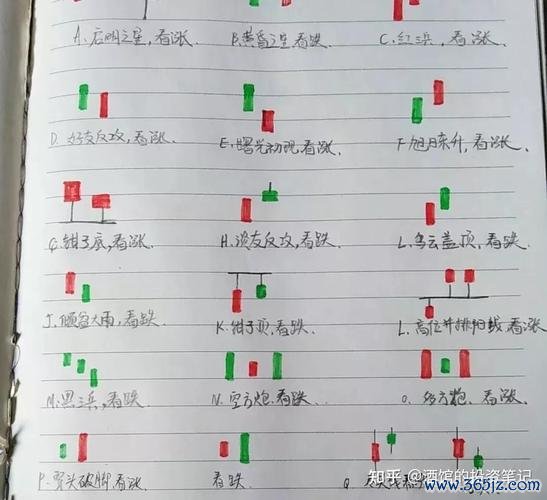 A. 启明之星,看涨.
B.黄昏之星看跌.
C.红三兵,看涨.
D. 好友反攻,看涨.
E.曙光初现,看涨.
F.旭日东升,看涨.
G.钳子底,看涨.
H.淡友反攻,看跌.
L.乌云盖顶,看跌.
J.倾盆大雨,看跌.
K.钳子顶,看跌.
L.高位并排阳线,看涨
M.黑三兵,看跌.
N.空方炮,看跌.
O.多方炮,看涨.
P.穿头破脚看涨.
看跌.
Q.
知乎 @酒馆的投资笔记
www.365jz.com